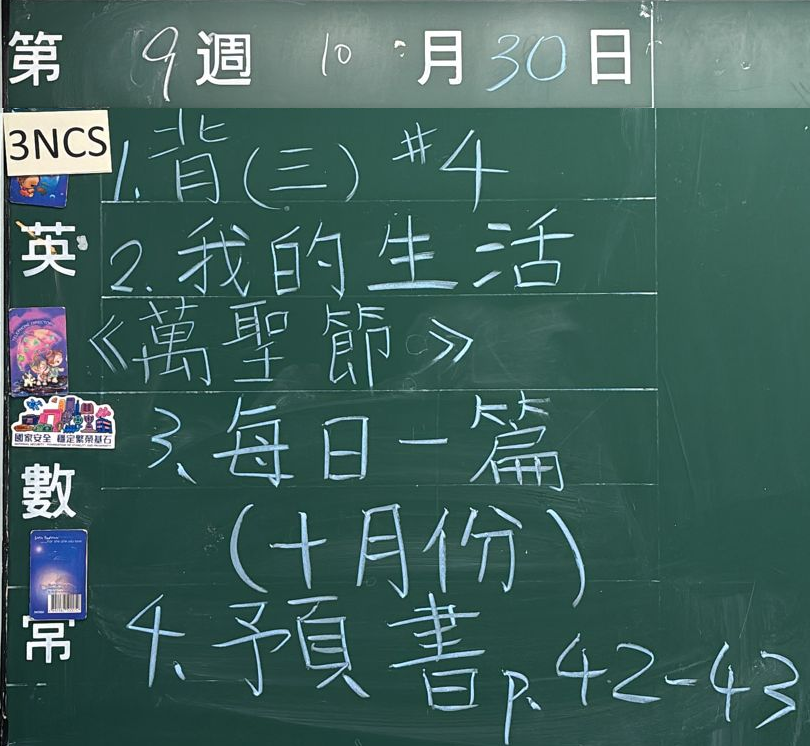 第 9 週 10 月 30 日
3NCS
1. 背(三) #4
英
2. 我的生活
《萬聖節》
國家安全 穩定繁榮基石
3、每日一篇
數
(十月份)
4、預書 p.42-43
常